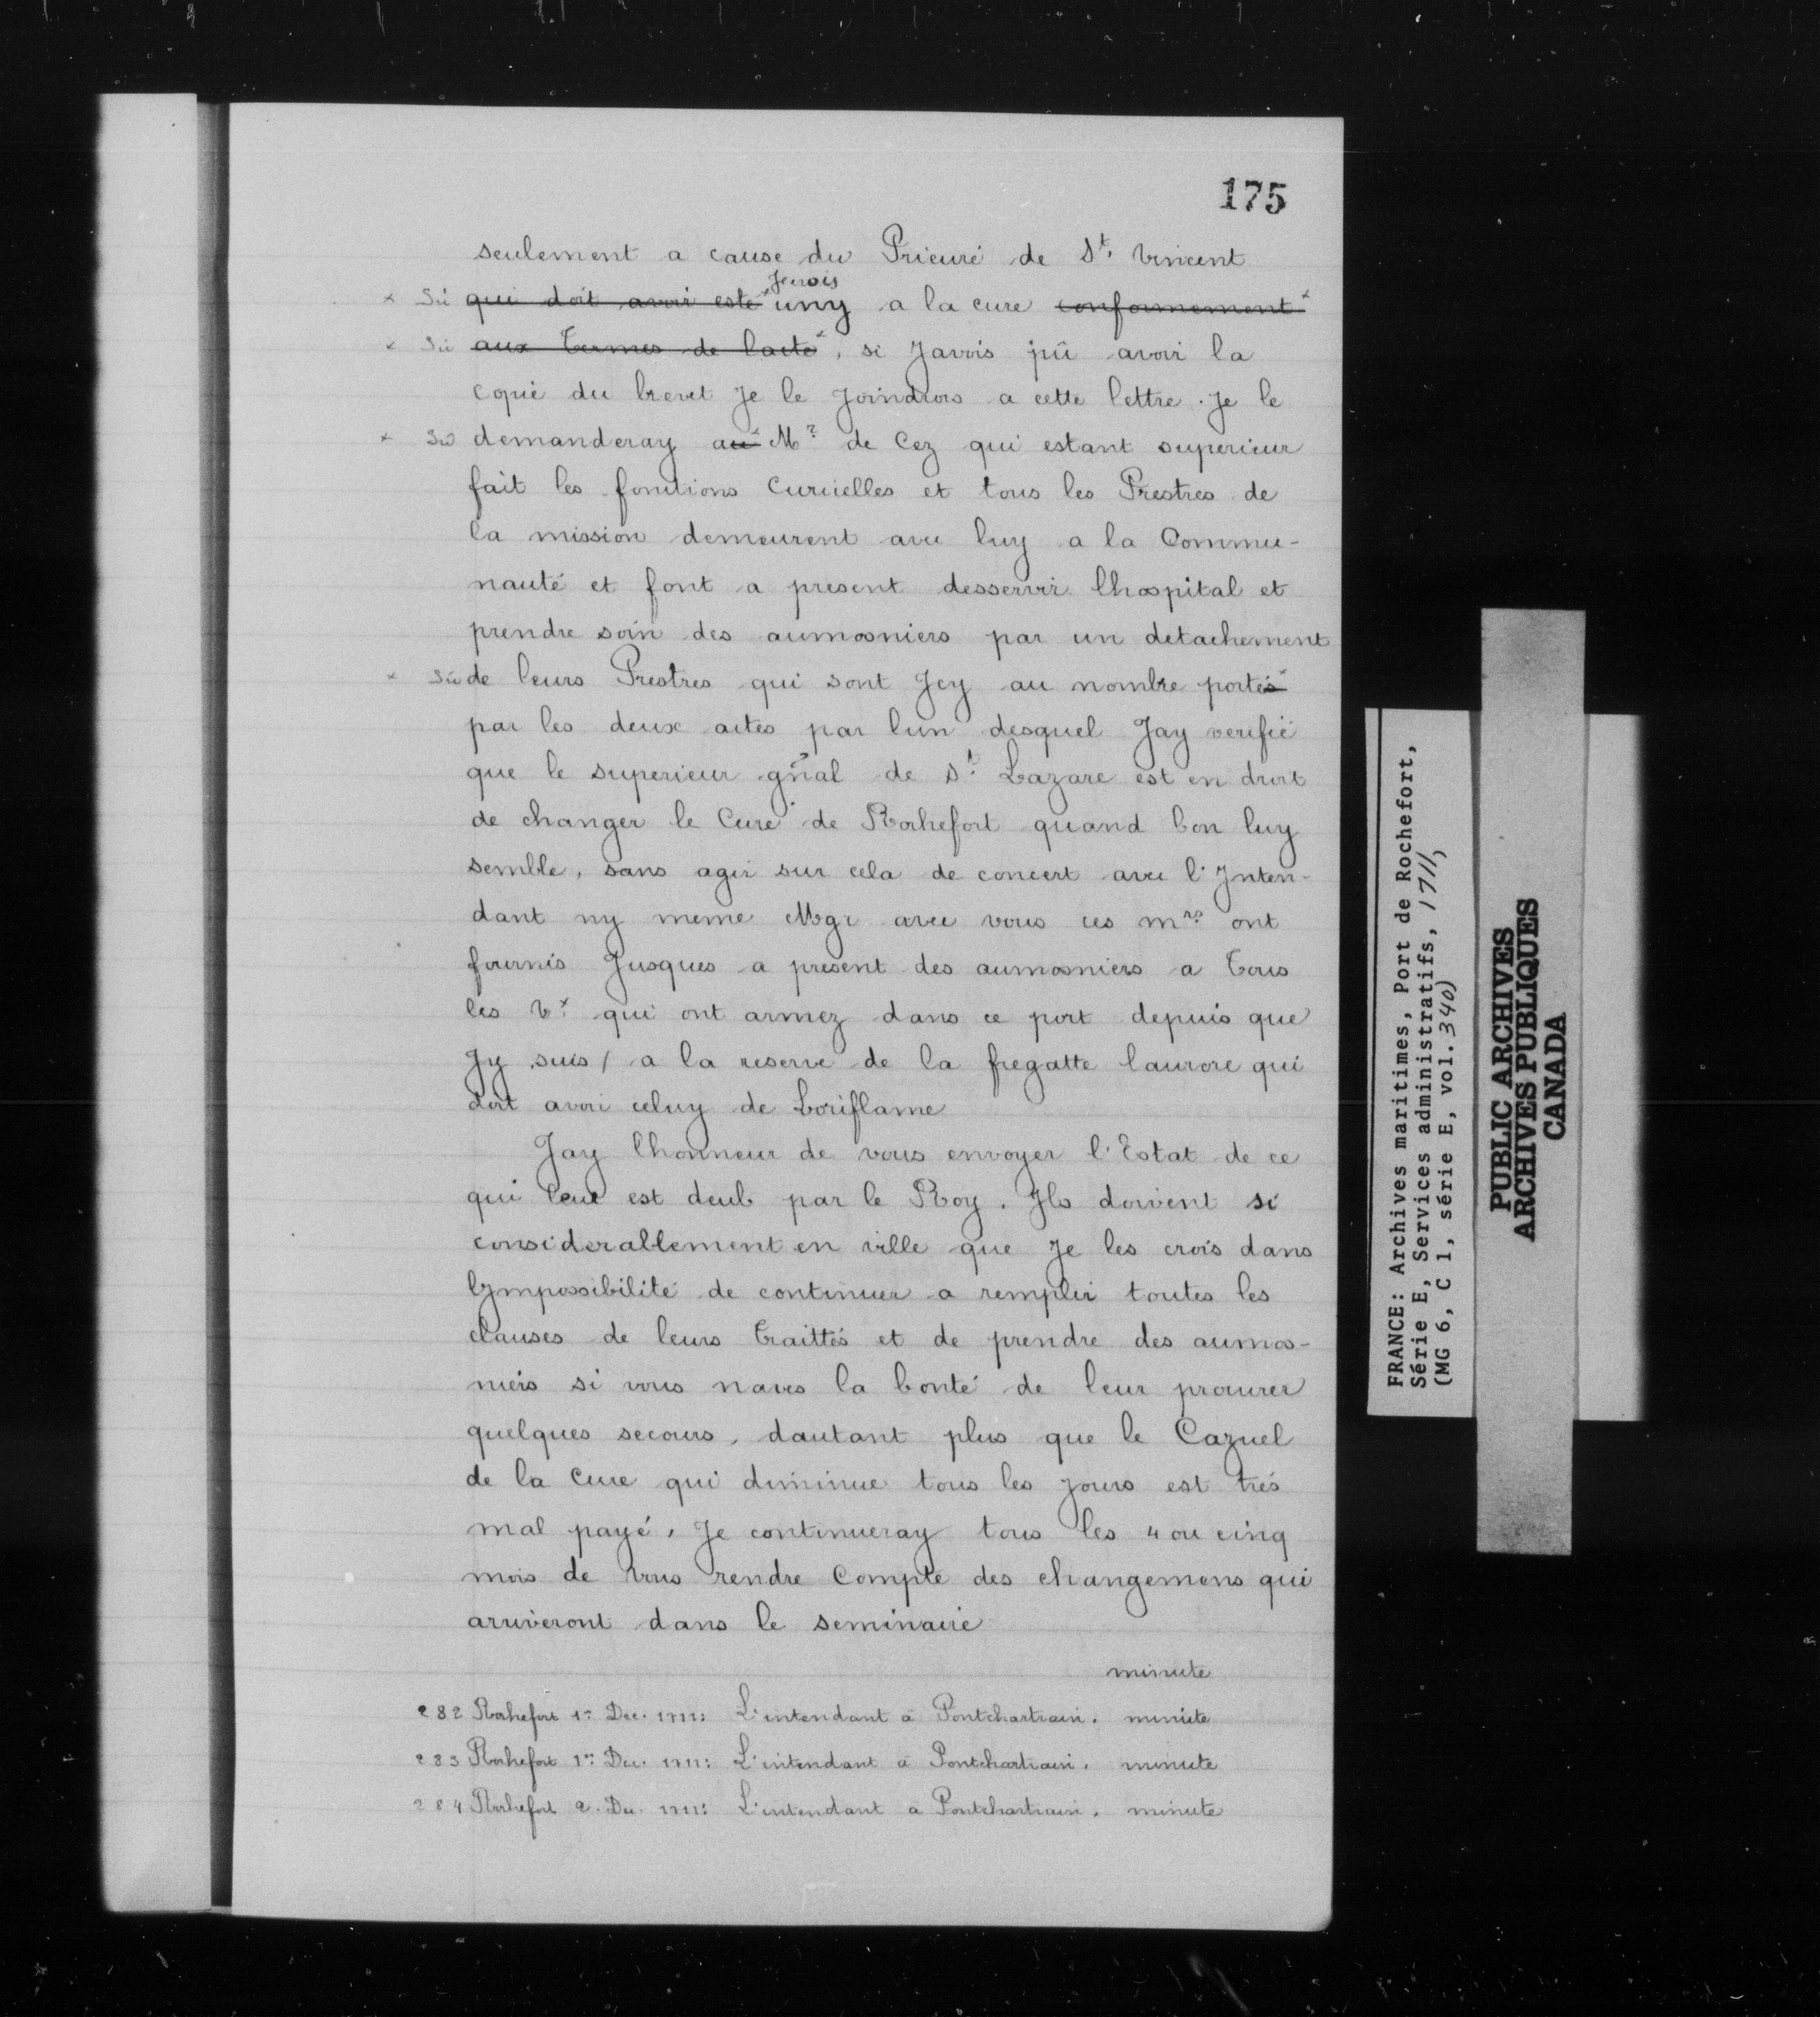 175
seulement a cause du Prieuré de St. Vincent
Jevois
x Sic qui doit avoir esté x uny a la cure conformement x
x Sic aux Termes de lacte x, si Javois pû avoir la
copie du brevet Je le Joindrois a cette lettre. Je le
x Sic demanderay au x Mr de Cez qui estant superieur
fait les fonctions Curielles et tous les Prestres de
la mission demeurent avec luy a la Commu-
nauté et font a present desservir lhospital et
prendre soin des aumosniers par un detachement
x Sic de leurs Prestres qui sont Jcy au nombre portés x
par les deux actes par lun desquel Jay verifié
que le superieur gñal de St. Lazare est en droit
de changer le Curé de Rochefort quand bon luy
semble, sans agir sur cela de concert avec l'Jnten-
dant ny meme Mgr avec vous ces mrs ont
fournis Jusques a present des aumosniers a Tous
les Vx qui ont armez dans ce port depuis que
Jy suis / a la reserve de la fregatte laurore qui
doit avoir celuy de Loriflame
Jay lhonneur de vous envoyer l'Estat de ce
qui leur est deub par le Roy. Jls doivent si
considerablement en ville que Je les crois dans
lJmpossibilité de continuer a remplir toutes les
clauses de leurs Traittés et de prendre des aumos-
niers si vous naves la bonté de leur procurer
quelques secours, dautant plus que le Cazuel
de la Cure qui diminue tous les jours est trés
mal payé, Je continueray tous les 4 ou cinq
mois de vous rendre Compte des changemens qui
arriveront dans le seminaire
minute
282 Rochefort 1er Dec. 1711: L'intendant à Pontchartrain. minute
283 Rochefort 1er Dec. 1711: L'intendant à Pontchartrain. minute
284 Rochefort 2. Dec. 1711: L'intendant à Pontchartrain. minute
FRANCE: Archives maritimes, Port de Rochefort,
Série E, Services administratifs, 1711,
(MG 6, C 1, série E, vol. 340)
PUBLIC ARCHIVES
ARCHIVES PUBLIQUES
CANADA